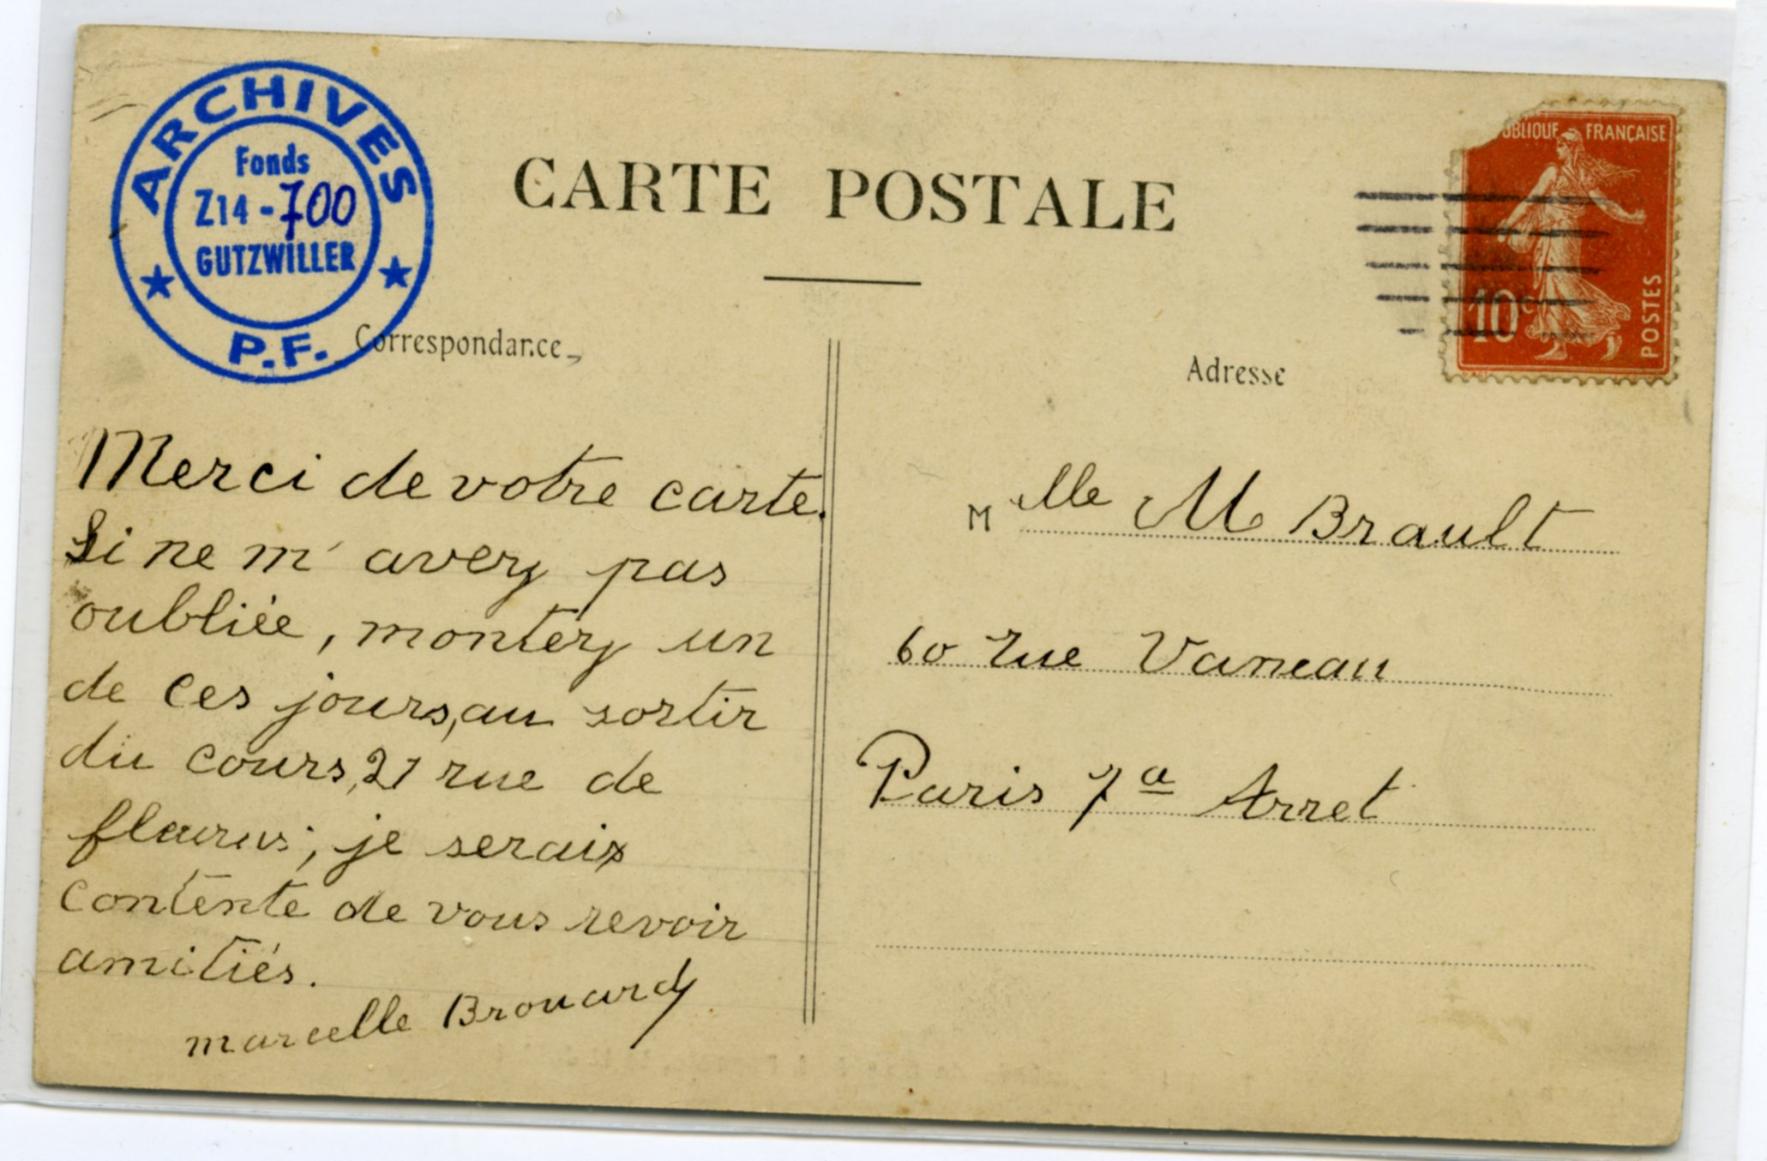 ARCHIVES
Fonds
Z14-700
GUTZWILLER
P.F.
CARTE POSTALE
UBLIQUE FRANÇAISE
10c
POSTES
Correspondance
Adresse
Merci de votre carte.
Si ne m' avez pas
oubliée, montez un
de ces jours, au sortir
du cours, 21 rue de
fleurus; je serais
contente de vous revoir
amitiés.
marcelle Brouardy
Mlle M Brault
60 rue Vaneau
Paris 7a Arret